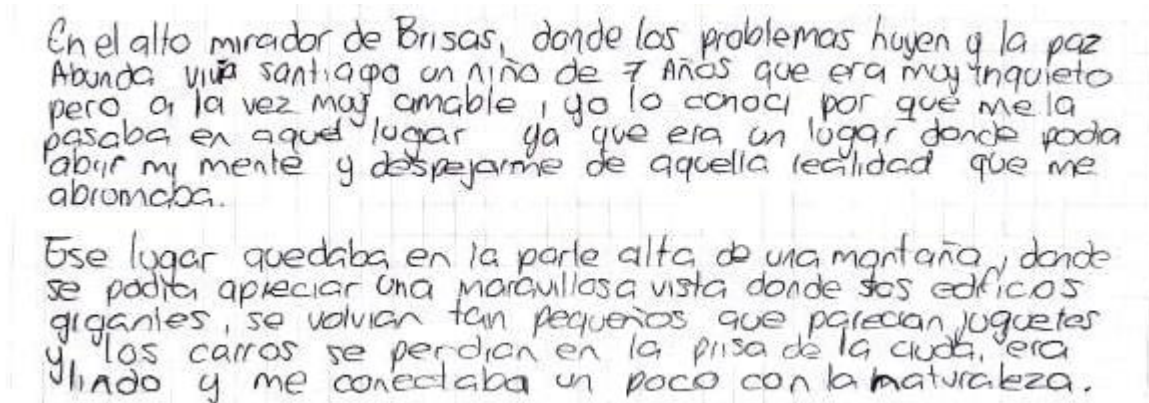 En el alto mirador de Brisas, donde los problemas huyen y la paz
Abunda vivia santiago un niño de 7 Años que era muy inquieto
pero a la vez muy amable, yo lo conoci por que me la
pasaba en aquel lugar ya que era un lugar donde podia
abrir mi mente y despejarme de aquella realidad que me
abromaba.
Ese lugar quedaba en la parte alta de una montaña, donde
se podia apreciar una maravillosa vista donde sos edificos
gigantes, se volvian tan pequeños que parecian juguetes
y los carros se perdian en la prisa de la ciuda, era
lindo y me conectaba un poco con la naturaleza.